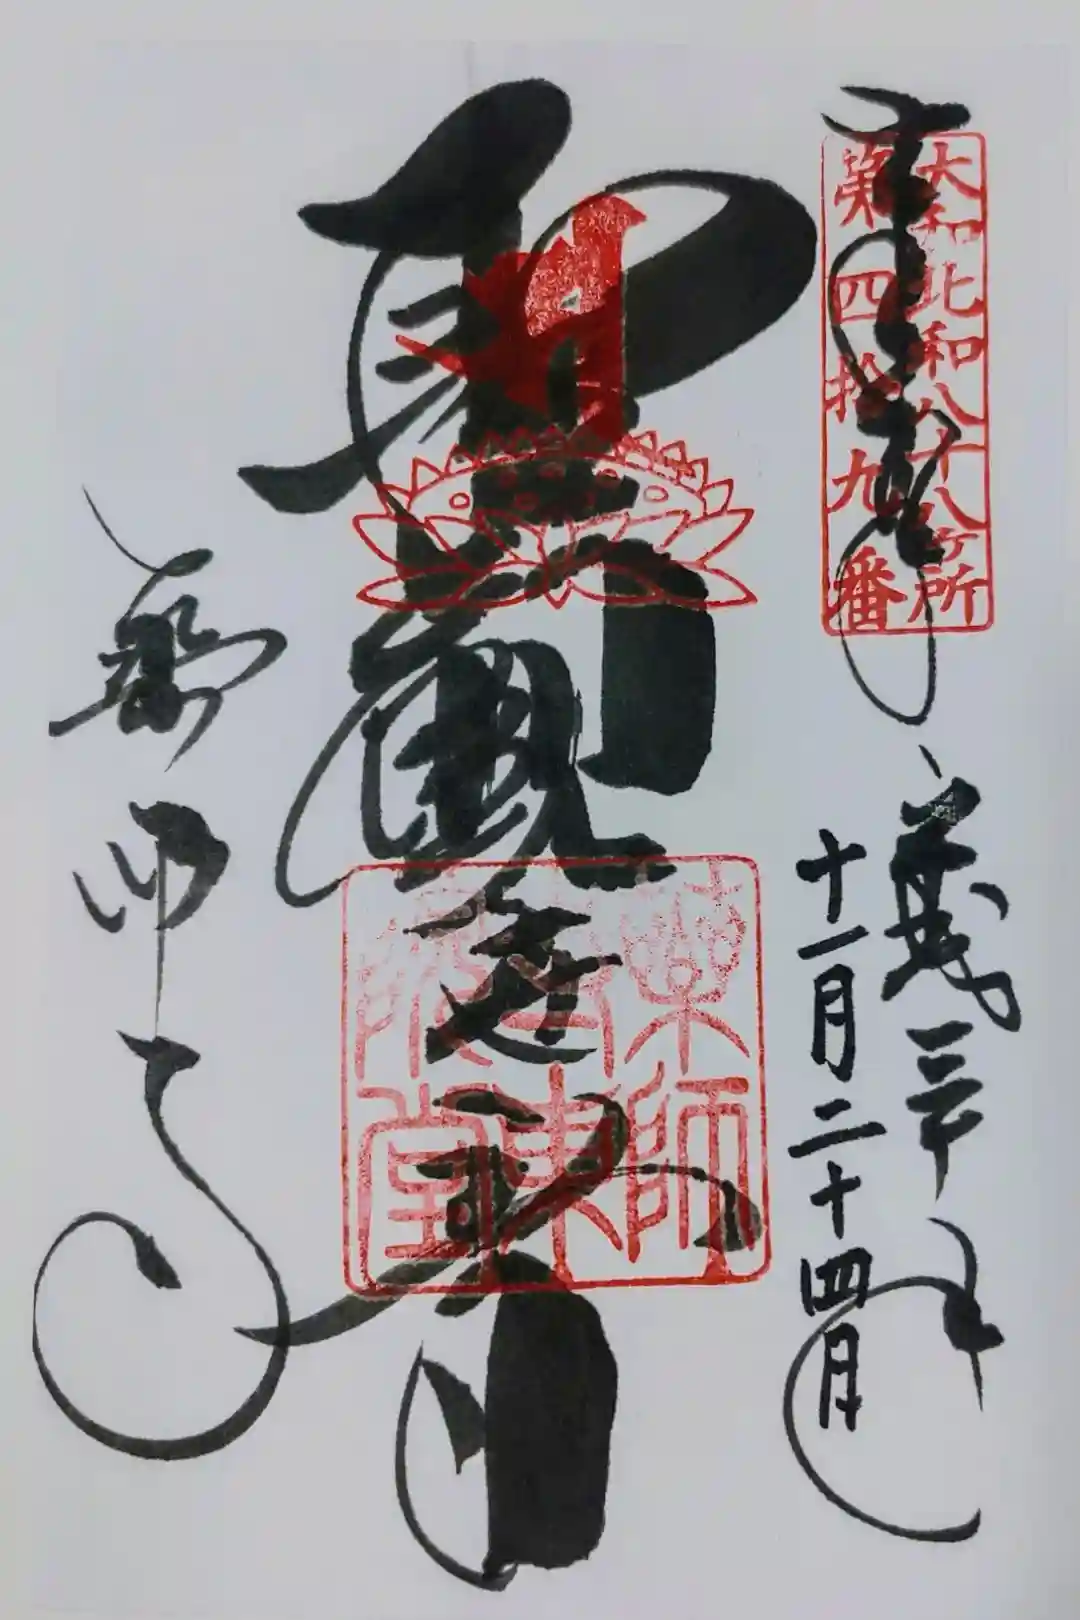 大和北和八十八ヶ所
第四拾九番
奉拝
十一月二十四日
聖観世音
薬師
寺東
院堂
薬師寺